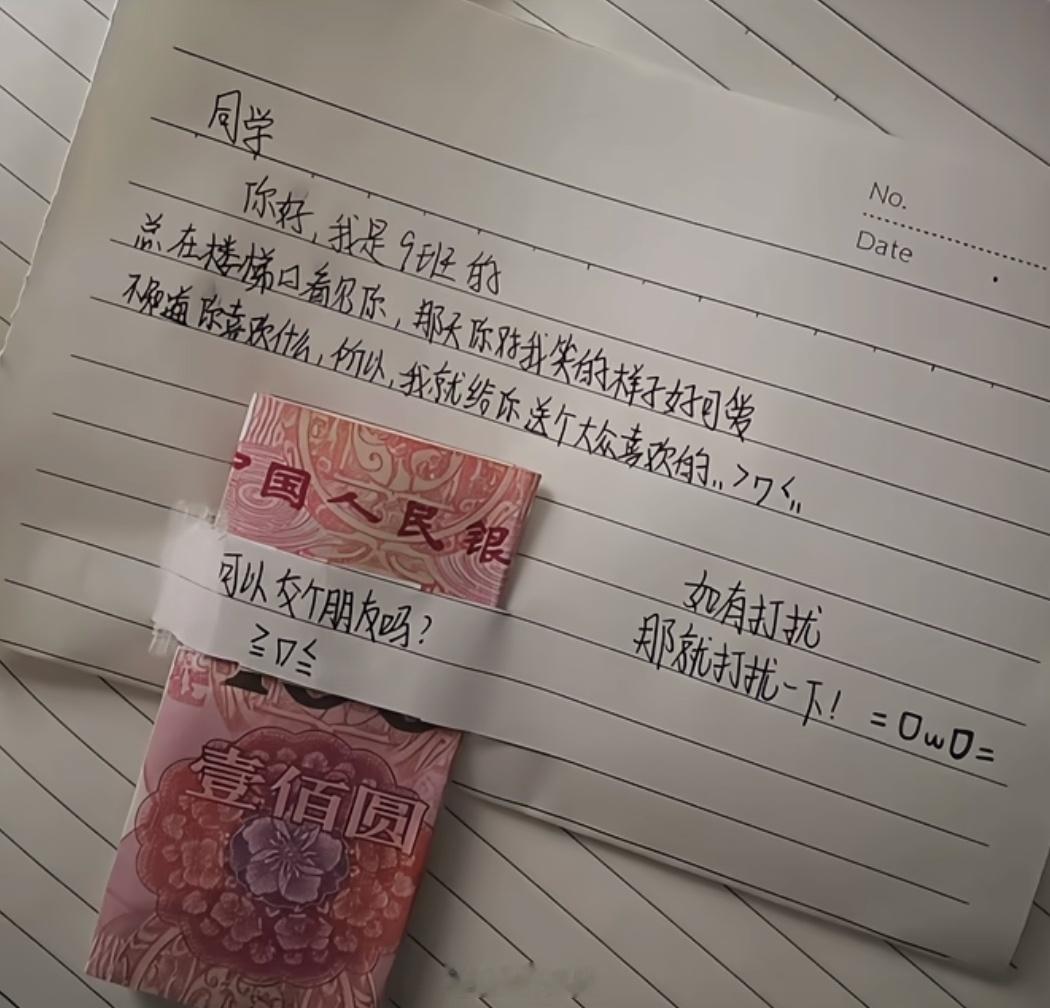 No.
Date
同学
你好,我是9班的
总在楼梯口看见你,那天你对我笑的样子好可爱
不知道你喜欢什么,所以,我就给你送个大众喜欢的,,>ワ<,,
中国人民银
可以交个朋友吗?
≥ワ≤
100
壹佰圆
如有打扰
那就打扰一下!=OwO=